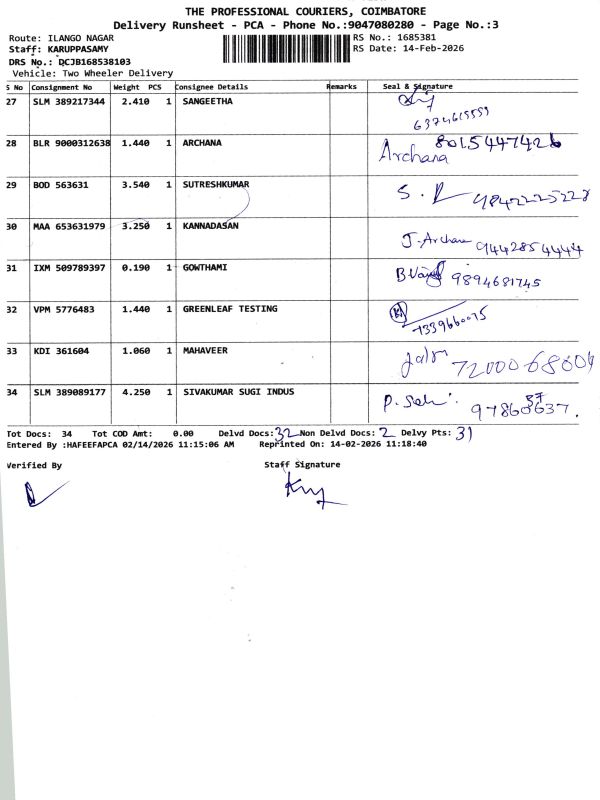 THE PROFESSIONAL COURIERS, COIMBATORE
Delivery Runsheet - PCA - Phone No.:9047080280 - Page No.:3
Route: ILANGO NAGAR RS No.: 1685381
Staff: KARUPPASAMY RS Date: 14-Feb-2026
DRS No.: DCJB168538103
Vehicle: Two Wheeler Delivery
S No Consignment No Weight PCS Consignee Details Remarks Seal & Signature
27 SLM 389217344 2.410 1 SANGEETHA
6374615559
28 BLR 9000312638 1.440 1 ARCHANA 8015447426
Archana
29 BOD 563631 3.540 1 SUTRESHKUMAR
9842225228
30 MAA 653631979 3.250 1 KANNADASAN
J. Archana 9442854444
31 IXM 509789397 0.190 1 GOWTHAMI
9894681745
32 VPM 5776483 1.440 1 GREENLEAF TESTING
7339660075
33 KDI 361604 1.060 1 MAHAVEER
7200068604
34 SLM 389089177 4.250 1 SIVAKUMAR SUGI INDUS
Tot Docs: 34 Tot COD Amt: 0.00 Delvd Docs: 32 Non Delvd Docs: 2 Delvy Pts: 31
Entered By :HAFEEFAPCA 02/14/2026 11:15:06 AM Reprinted On: 14-02-2026 11:18:40
Verified By Staff Signature